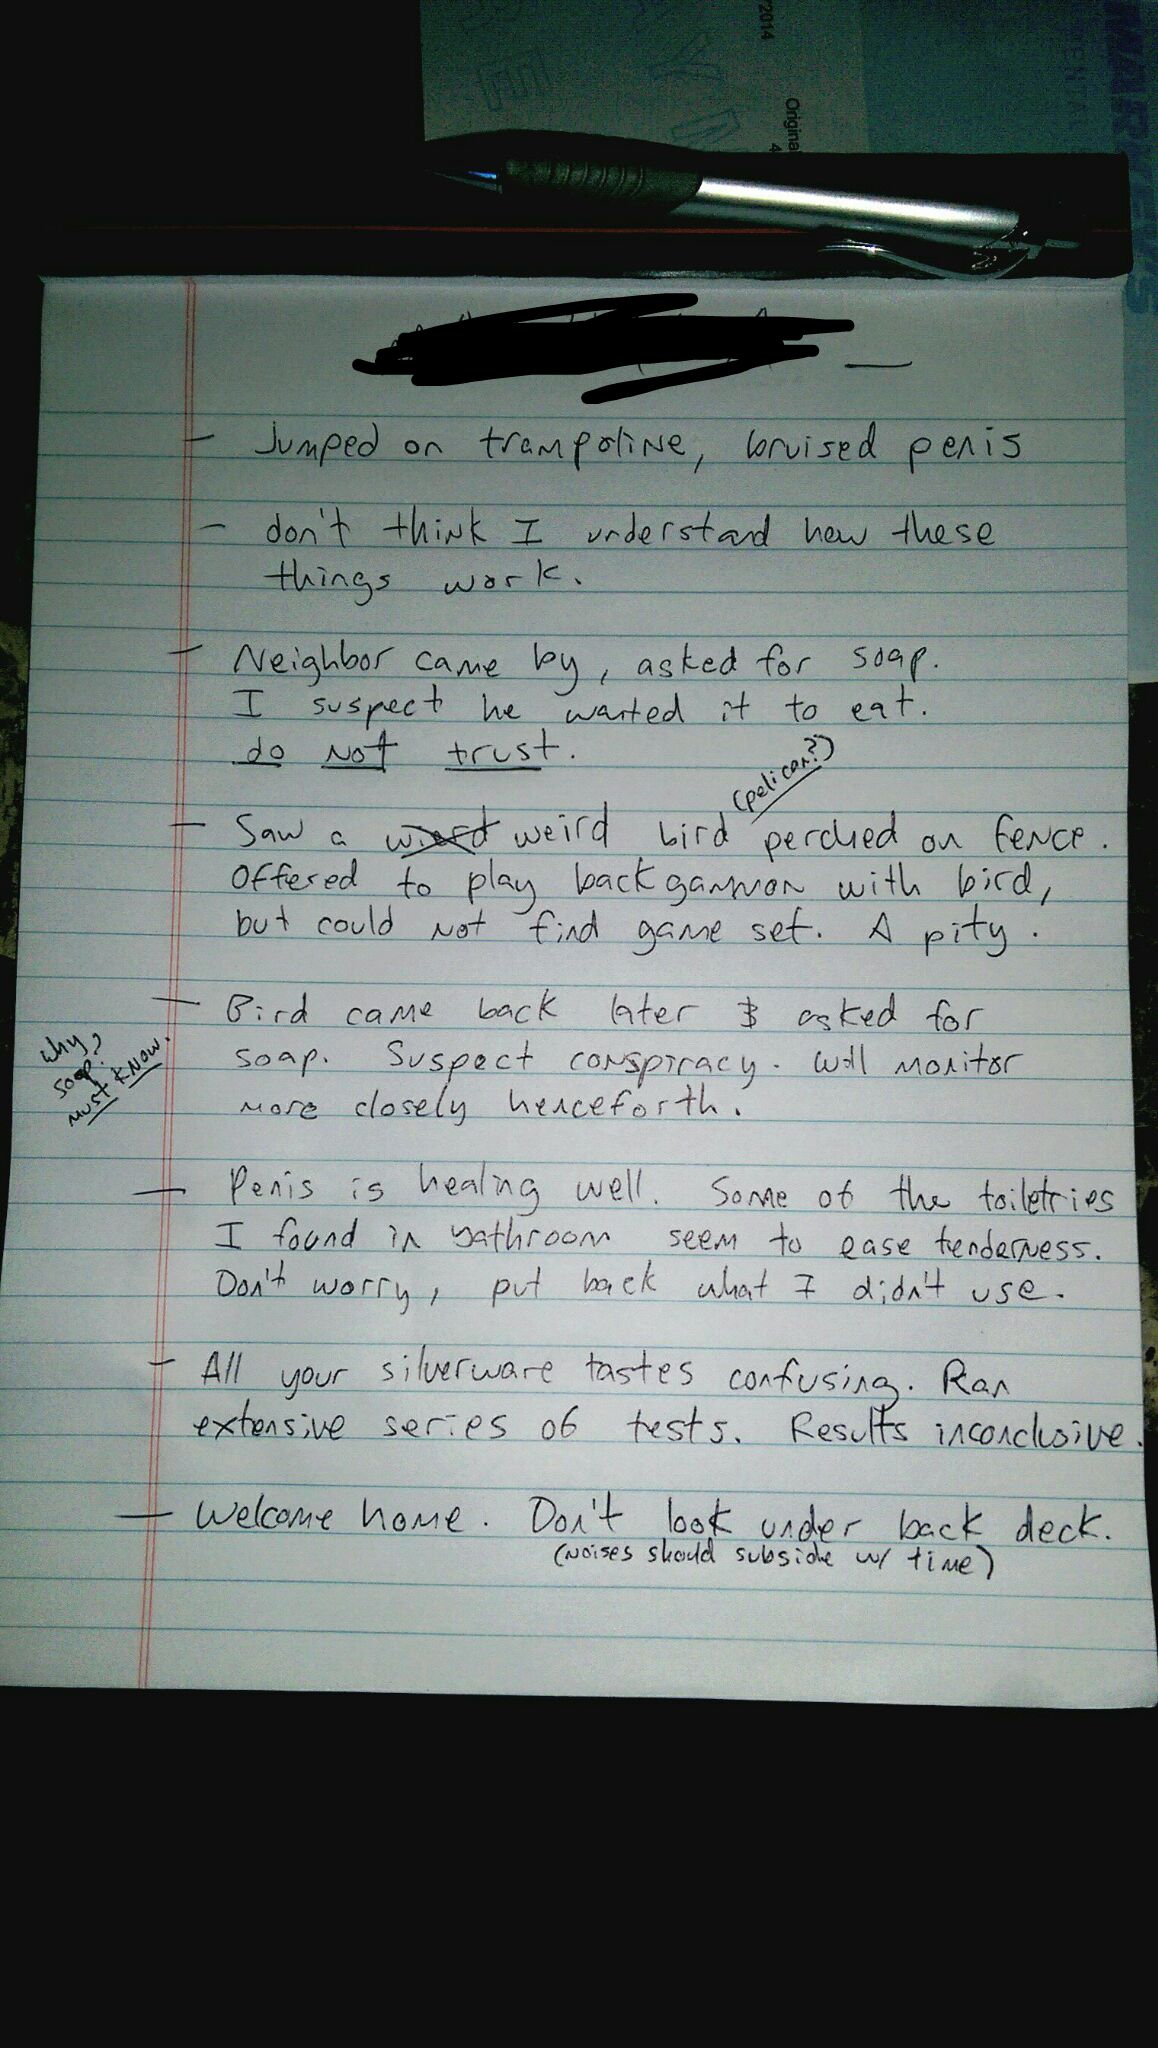 2014
Original
4
- Jumped on trampoline, bruised penis
- don't think I understand how these
things work.
- Neighbor came by, asked for soap.
I suspect he wanted it to eat.
do not trust.
(pelican?)
- Saw a wierd weird bird perched on fence.
Offered to play backgammon with bird,
but could not find game set. A pity.
- Bird came back later & asked for
soap. Suspect conspiracy. Will monitor
more closely henceforth.
why
soap?
must know.
- Penis is healing well. Some of the toiletries
I found in bathroom seem to ease tenderness.
Don't worry, put back what I didn't use.
- All your silverware tastes confusing. Ran
extensive series of tests. Results inconclusive.
- Welcome home. Don't look under back deck.
(noises should subside w/ time)